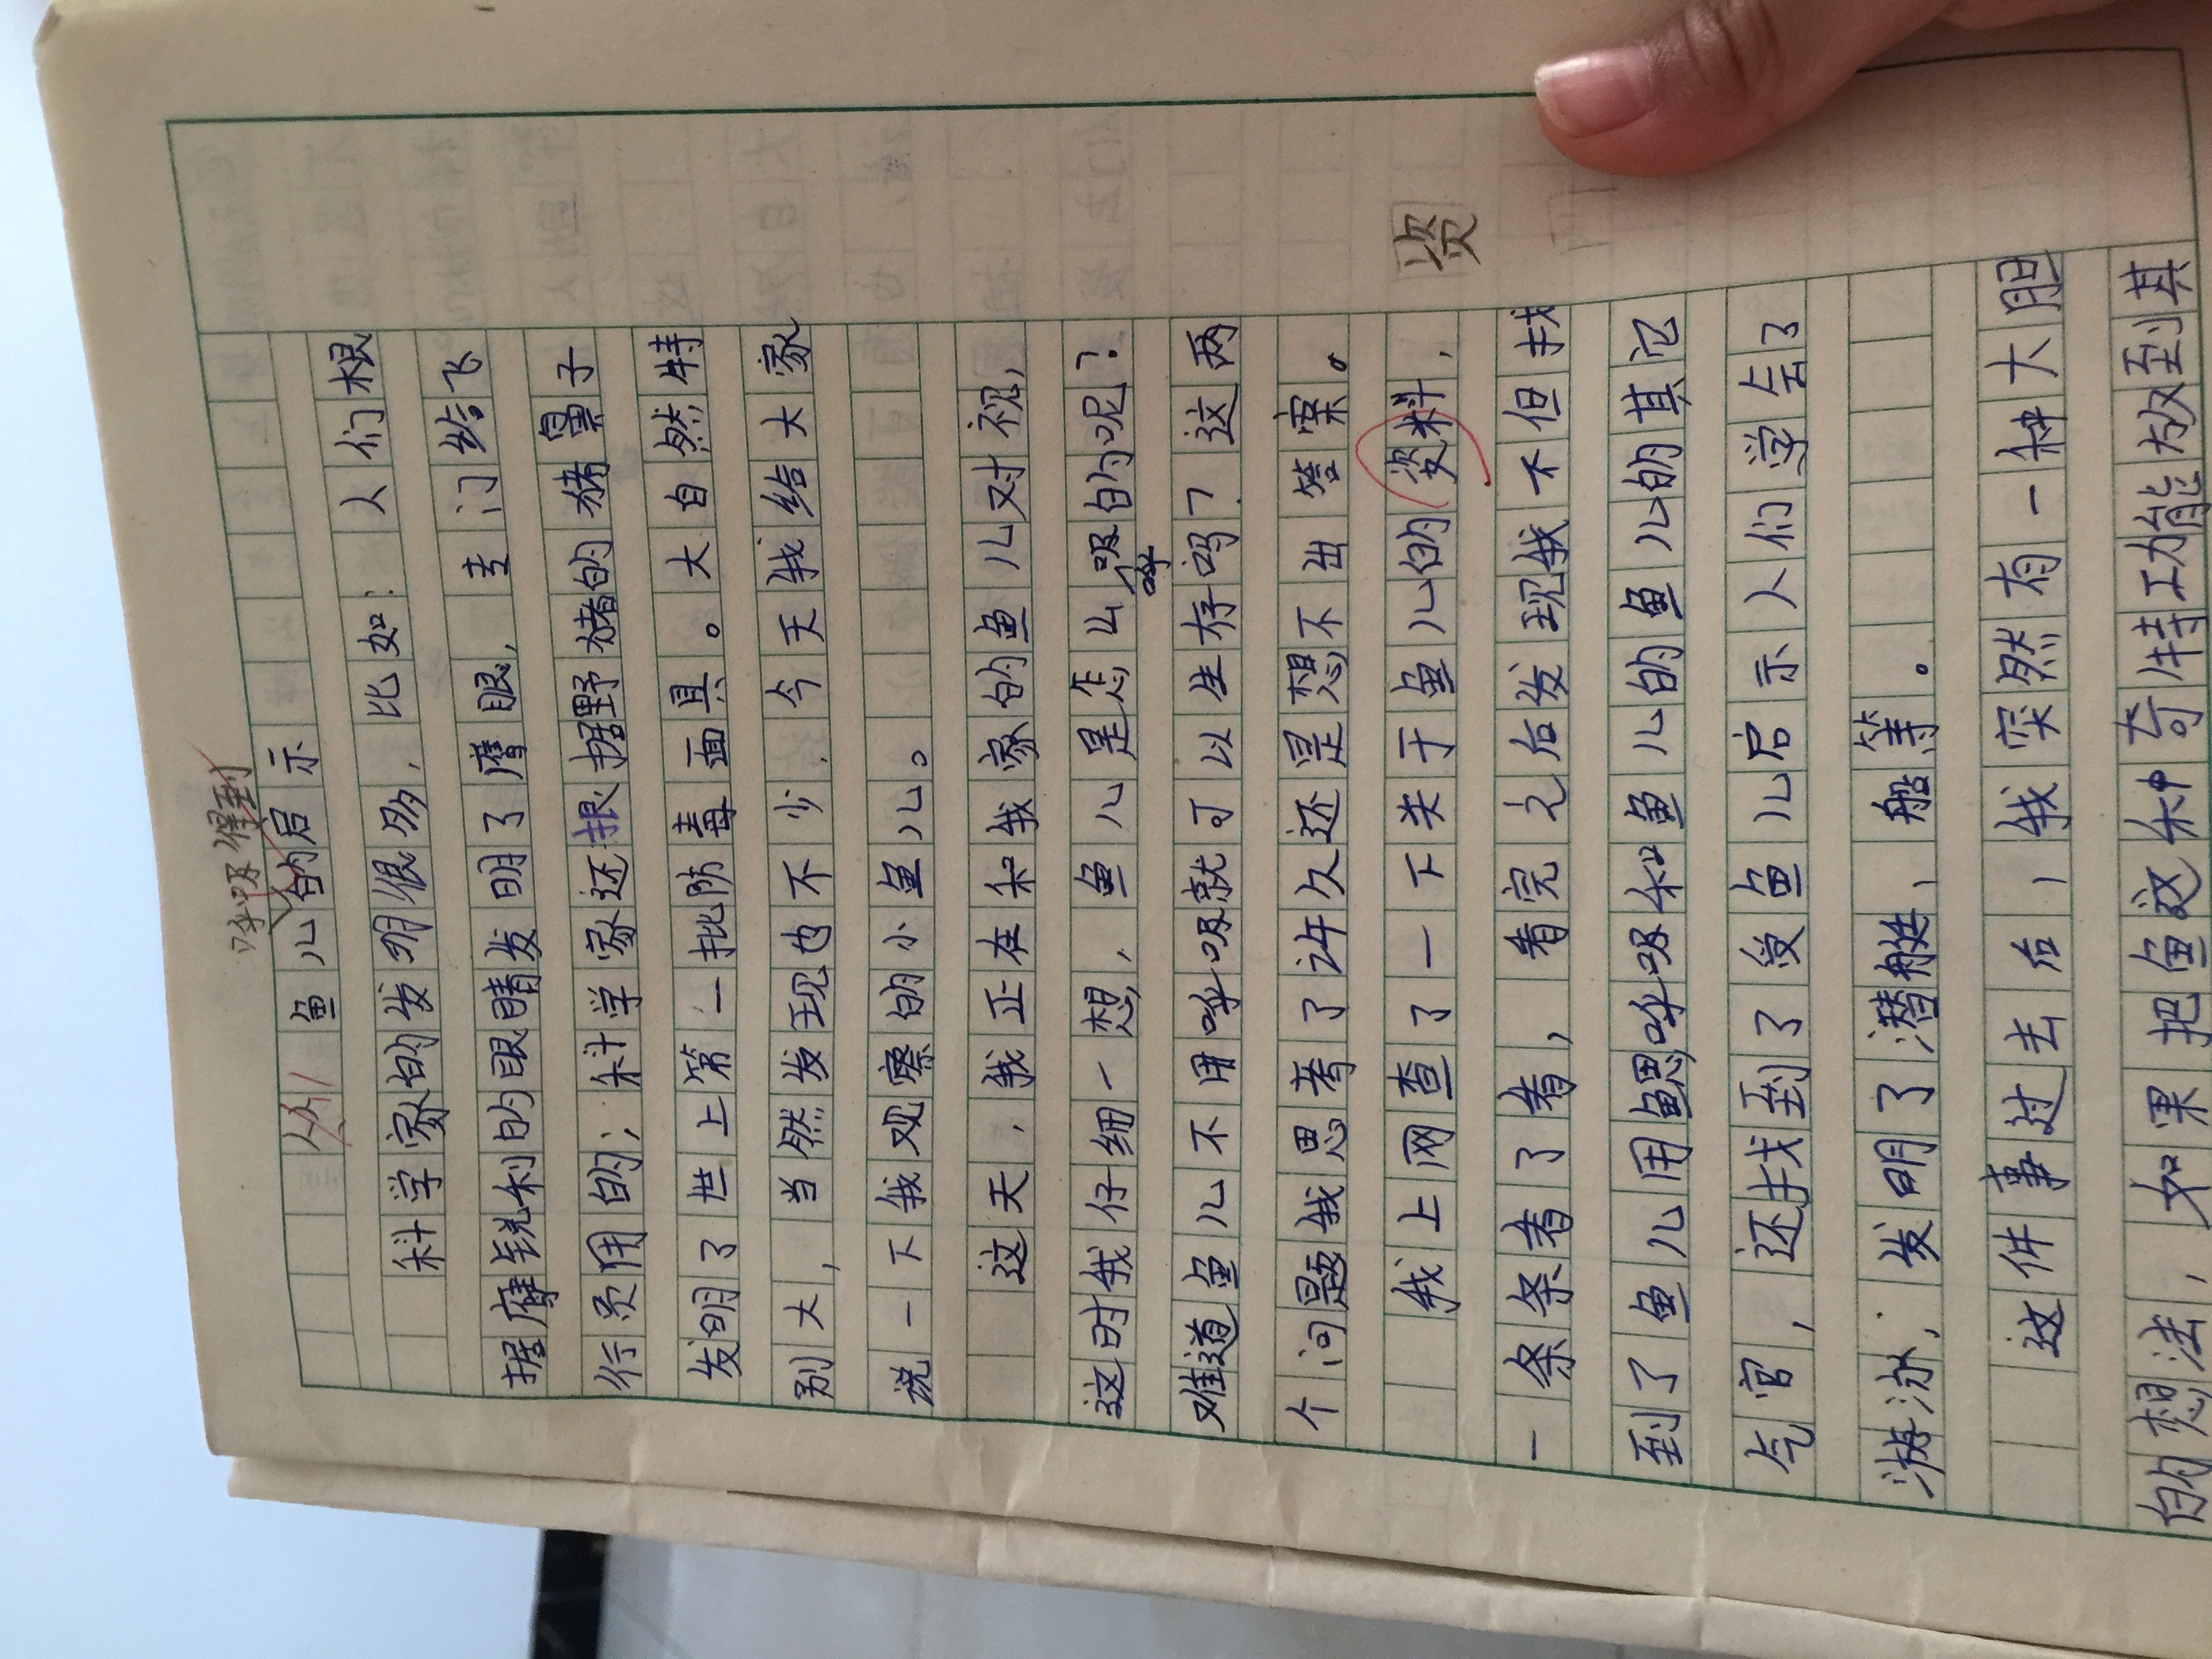 呼吸得到
从鱼儿的启示
科学家的发明很多，比如：人们根
据鹰锐利的眼睛发明了鹰眼，专门给飞
行员用的；科学家还根据野猪的猪鼻子
发明了世上第一批防毒面具。大自然特
别大，当然发现也不少，今天我给大家
说一下我观察的小鱼儿。
这天，我正在和我家的鱼儿对视，
这时我仔细一想，鱼儿是怎么呼吸的呢？
难道鱼儿不用呼吸就可以生存吗？这两
个问题我思考了许久还是想不出答案。
我上网查了一下关于鱼儿的资料，
资
一条条看了看，看完之后发现我不但找
到了鱼儿用鳃呼吸和鱼儿的鱼儿的其它
气官，还找到了受鱼儿启示人们学会了
游泳；发明了潜艇、船等。
这件事过去后，我突然有一种大胆
的想法，如果把鱼这种奇特功能放到其